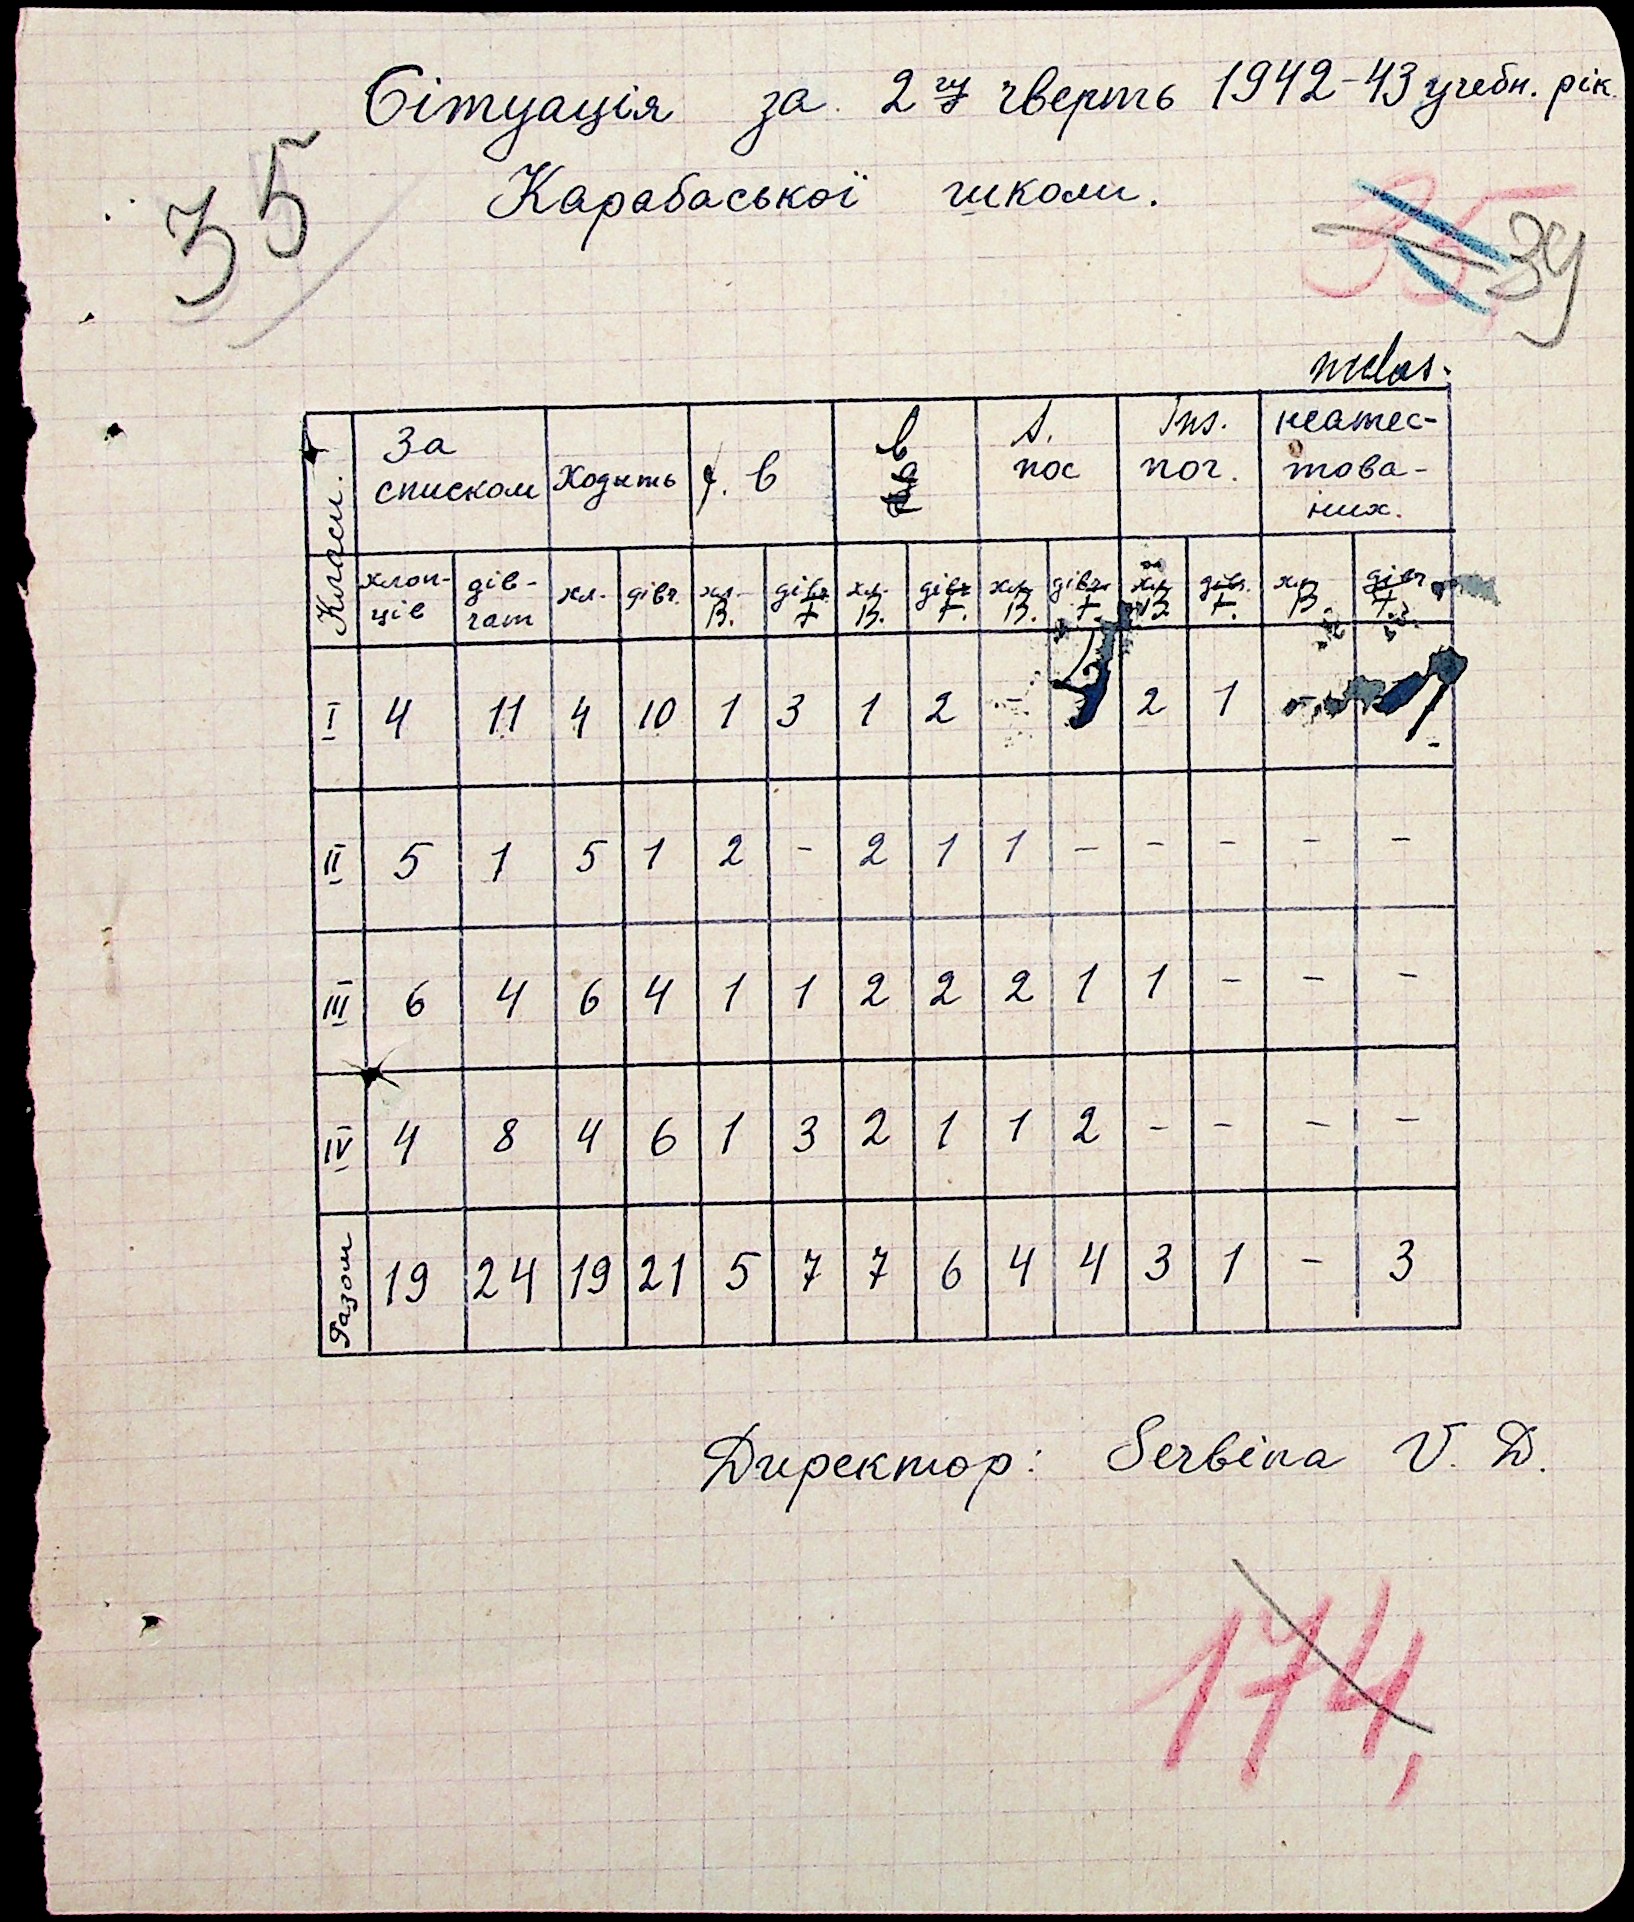 Сітуація за 2гу чверть 1942-43 учебн. рік.
Карабаської школи.
35
35
39
Класи. | За списком | Ходыть | f. b | b | s. пос | Ins. пог. | неатес-това-них.
хлоп-ців | дів-чат | хл. | дівч. | хл. B. | дівч. F | хл. B. | дівч F. | хл. B. | дівч. F. | хл. B | дівч. F. | хл. B. | дівч F.
I | 4 | 11 | 4 | 10 | 1 | 3 | 1 | 2 | - | | 2 | 1 | - | -
II | 5 | 1 | 5 | 1 | 2 | - | 2 | 1 | 1 | - | - | - | - | -
III | 6 | 4 | 6 | 4 | 1 | 1 | 2 | 2 | 2 | 1 | 1 | - | - | -
IV | 4 | 8 | 4 | 6 | 1 | 3 | 2 | 1 | 1 | 2 | - | - | - | -
Разом | 19 | 24 | 19 | 21 | 5 | 7 | 7 | 6 | 4 | 4 | 3 | 1 | - | 3
Директор: Serbina V. D.
174,